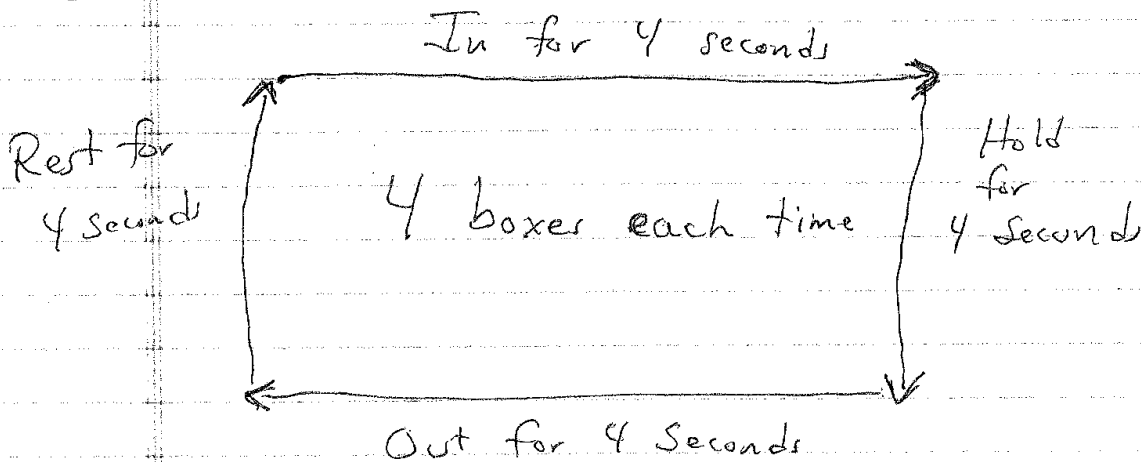 In for 4 seconds
Rest for
4 seconds
4 boxes each time
Hold
for
4 seconds
Out for 4 Seconds